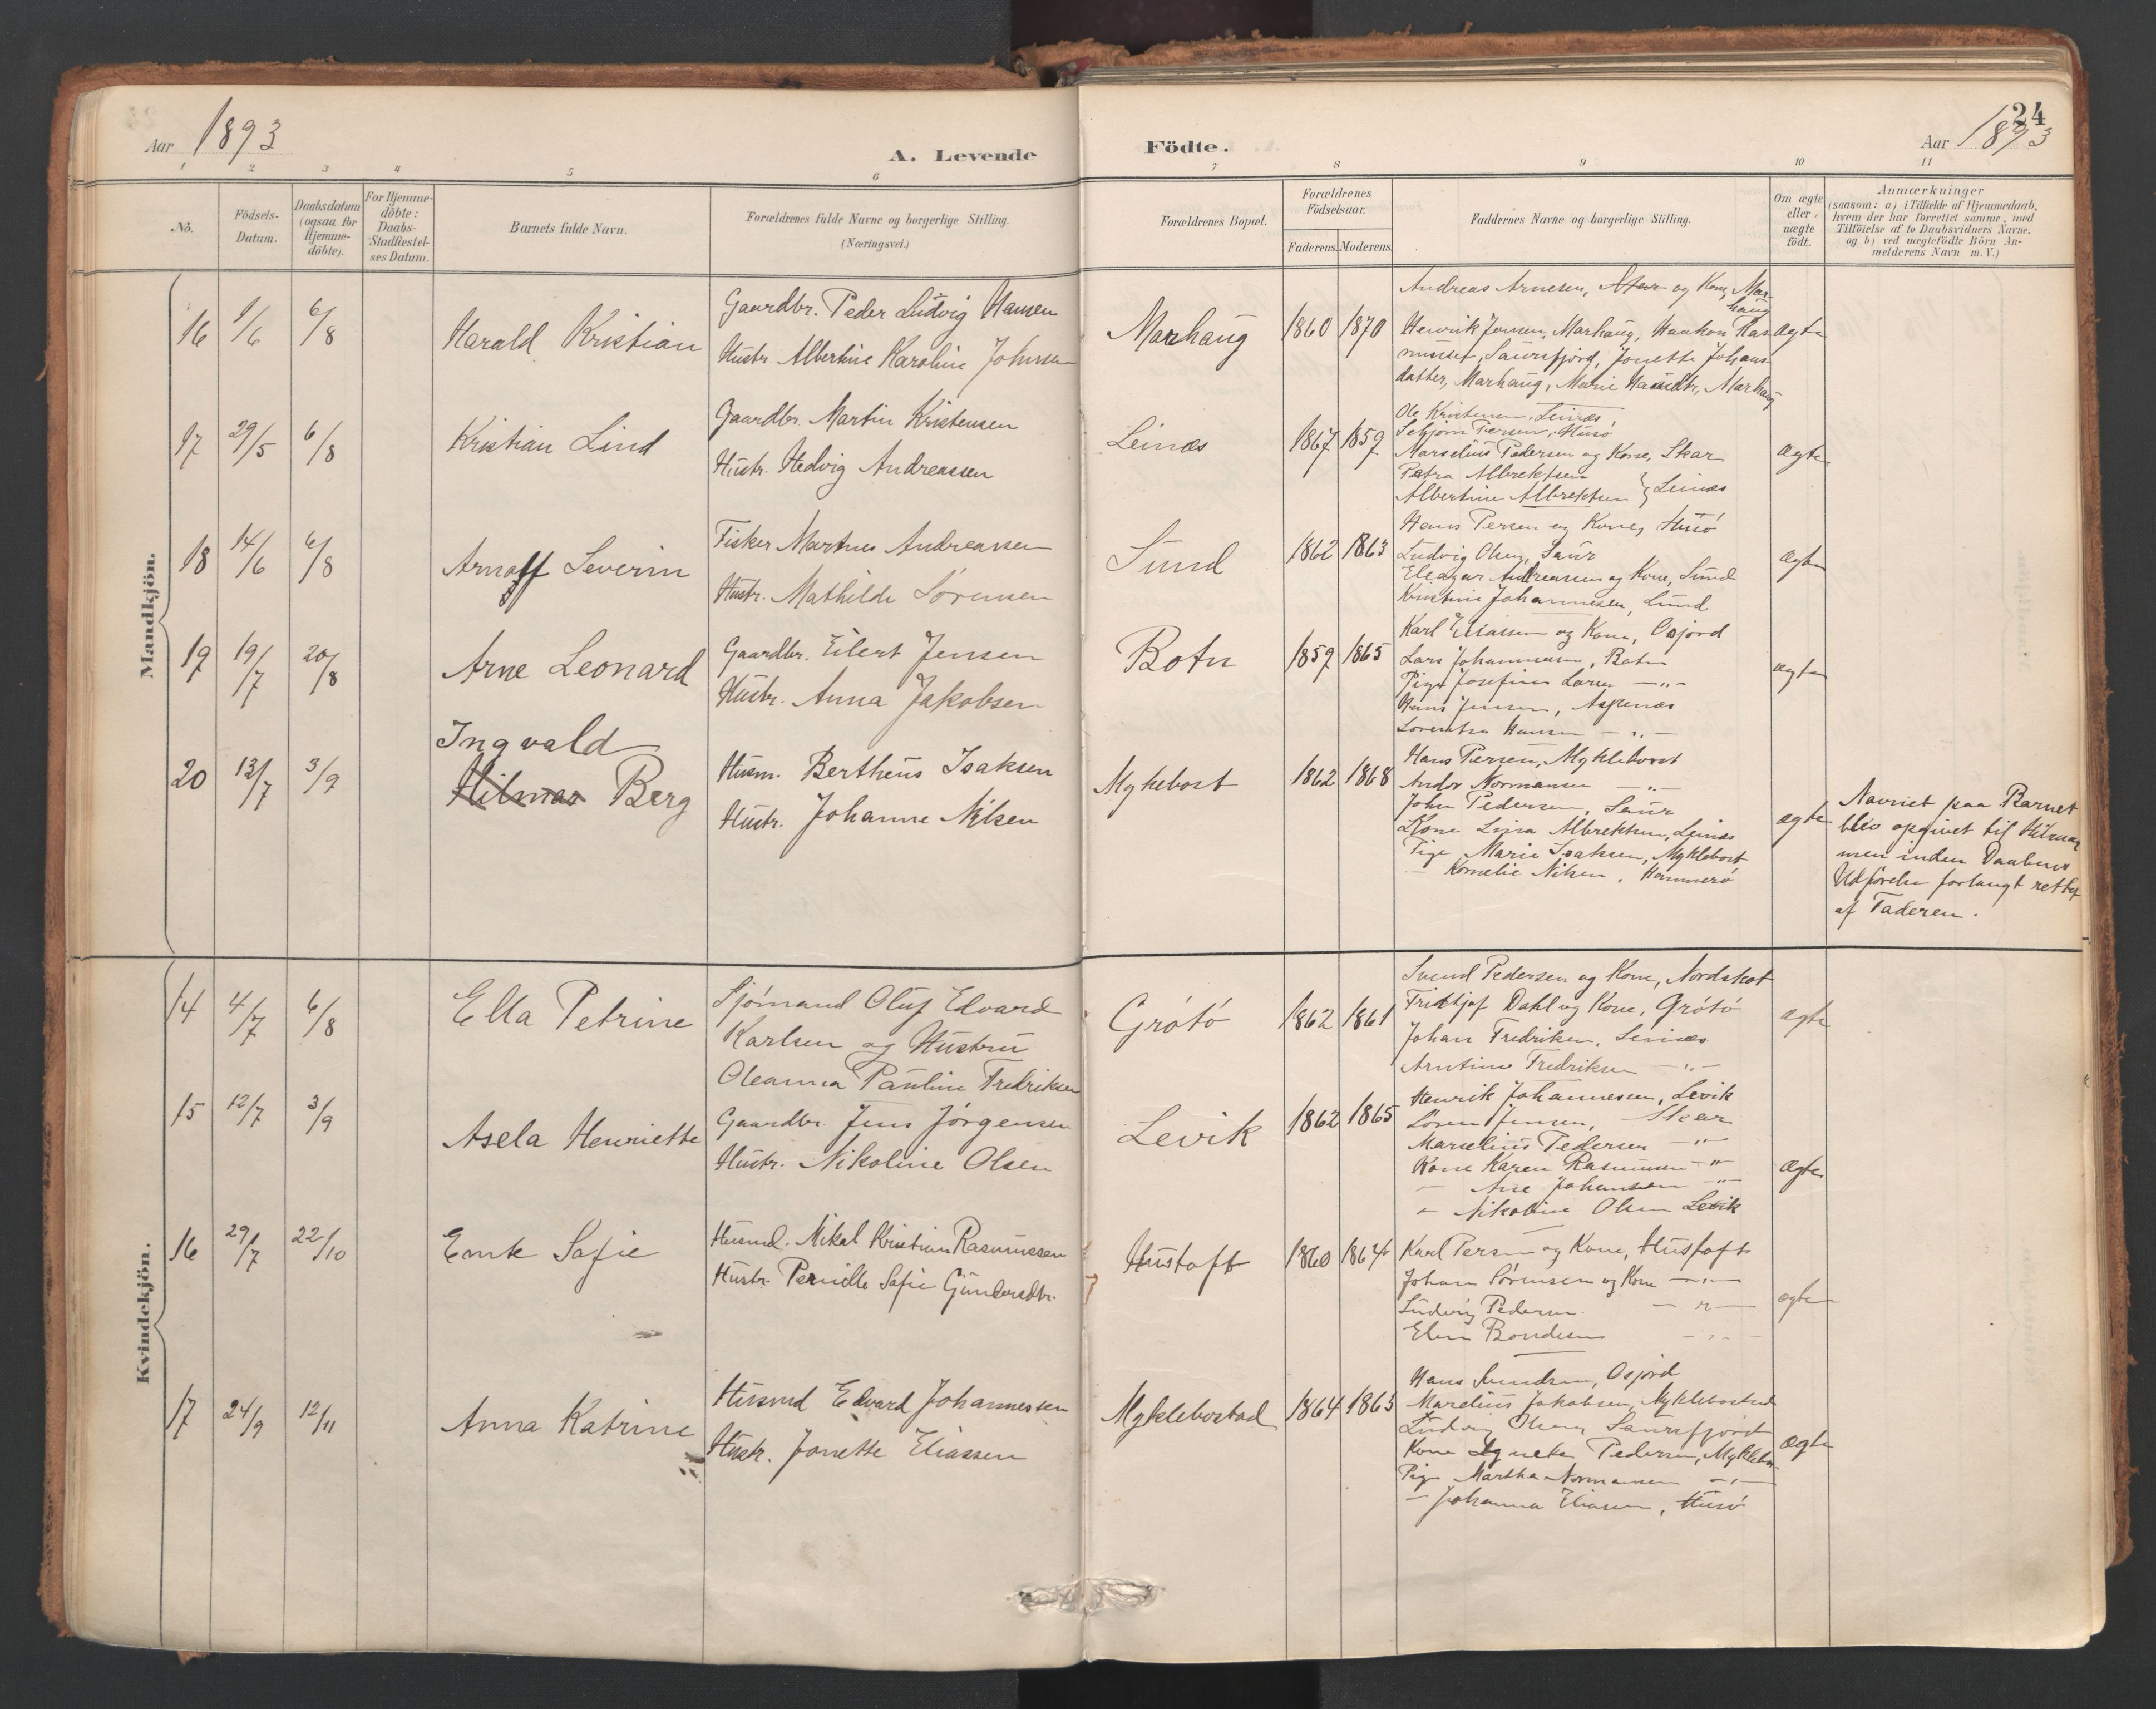 Aar 1893
A. Levende
Födte.
24
Aar 1893
1 2 3 4 5 6 7 8 9 10 11
No.
Födsels-
Datum.
Daabsdatum
(ogsaa for
Hjemme-
döbte).
For Hjemme-
döbte:
Daabs-
Stadfæstel-
ses Datum.
Barnets fulde Navn.
Forældrenes fulde Navne og borgerlige Stilling.
(Næringsvei.)
Forældrenes Bopæl.
Forældrenes
Födselsaar.
Faderens. Moderens.
Faddernes Navne og borgerlige Stilling.
Om ægte
eller
uægte
födt.
Anmærkninger
(saasom: a) i Tilfælde af Hjemmedaab,
hvem der har forrettet samme, med
Tilföielse af to Daabsvidners Navne.
og b) ved uægtefödte Börn An-
melderens Navn m. V.)
Mandkjön.
16 1/6 6/8 Harald Kristian
Gaardbr. Peder Ludvig Hansen
Hustr Albertine Karoline Johnsen
Marhaug 1860 1870
Andreas Arnesen, og Kone, Mar-
haug
Henrik Jensen, Marhaug, Haakon Ras-
mussen, Saursfjord, Jonette Johans-
datter, Marhaug, Marie Marhaug
ægte
17 29/5 6/8 Kristian Lind
Gaardbr. Martin Kristensen
Hustr. Hedvig Andreassen
Leinæs 1867 1859
Ole Kristensen, Leinæs
Persen, Husö
Marselius Pedersen og Kone, Skar
Petra Albrektsen
Albertine Albrektsen } Leinæs
ægte
18 14/6 6/8 Arnoff Severin
Fisker Martnes Andreassen
Hustr. Mathilde Sörensen
Sund 1862 1863
Hans Persen og Kone, Husö
Ludvig Olsen, Saur
Eleazar Andreassen og Kone, Sund
Kristine Johannesen, Sund
ægte
19 19/7 20/8 Arne Leonard
Gaardbr. Eilert Jensen
Hustr. Anna Jakobsen
Botn 1859 1865
Karl Eliassen og Kone, Osjord
Lars Johannesen, Botn
Pige Josefine Larsen -"-
Hans Jensen, Aspenæs
Lorentza Hansen -"-
ægte
20 13/7 3/9 Ingvald
Hilmar Berg
Husm. Bertheus Isaksen
Hustr. Johanne Nilsen
Myklebost 1862 1868
Hans Persen, Myklebost
Andor Normansen -"-
John Pedersen, Saur
Kone Lina Albrektsen, Leinæs
Pige Marie Isaksen, Myklebost
— Kornelie Nilsen, Hammerö
ægte
Navnet paa Barnet
blev opgivet til Hilmar
men inden Daabens
Udförelse forlangt rettet
af Faderen.
Kvindekjön.
14 4/7 6/8 Ella Petrine
Sjömand Oluf Edvard
Karlsen og Hustru
Oleanna Pauline Fredriksen
Grötö 1862 1861
Svend Pedersen og Kone, Nordskot
Fridtjof Dahl og Kone, Grötö
Johan Fredriksen, Leinæs
Arntine Fredriksen -"-
ægte
15 12/7 3/9 Asela Henriette
Gaardbr. Jens Jörgensen
Hustr. Nikoline Olsen
Levik 1862 1865
Henrik Johannesen, Levik
Sören Jensen, Skar
Marselius Pedersen -"-
Kone Karen Rasmussen -"-
— Ane Johansen -"-
— Nikoline Olsen Levik
ægte
16 29/7 22/10 Emk Sofie
Husmd. Mikal Kristian Rasmussen
Hustr. Pernille Sofie Gundersdtr.
Hustoft 1860 1864
Karl Persen og Kone, Hustoft
Johan Sörensen og Kone -"-
Ludvig Pedersen -"-
Elen Bondesen -"-
ægte
17 24/9 12/11 Anna Katrine
Husmd Edvard Johannessen
Hustr. Jonette Eliassen
Myklebostad 1864 1863
Hans Osjord
Marelius Jakobsen, Myklebostad
Ludvig Olsen, Saursfjord
Kone Pedersen, Myklebo
Pige Martha Normansen -"-
— Johanna Eliasen, Husö
ægte